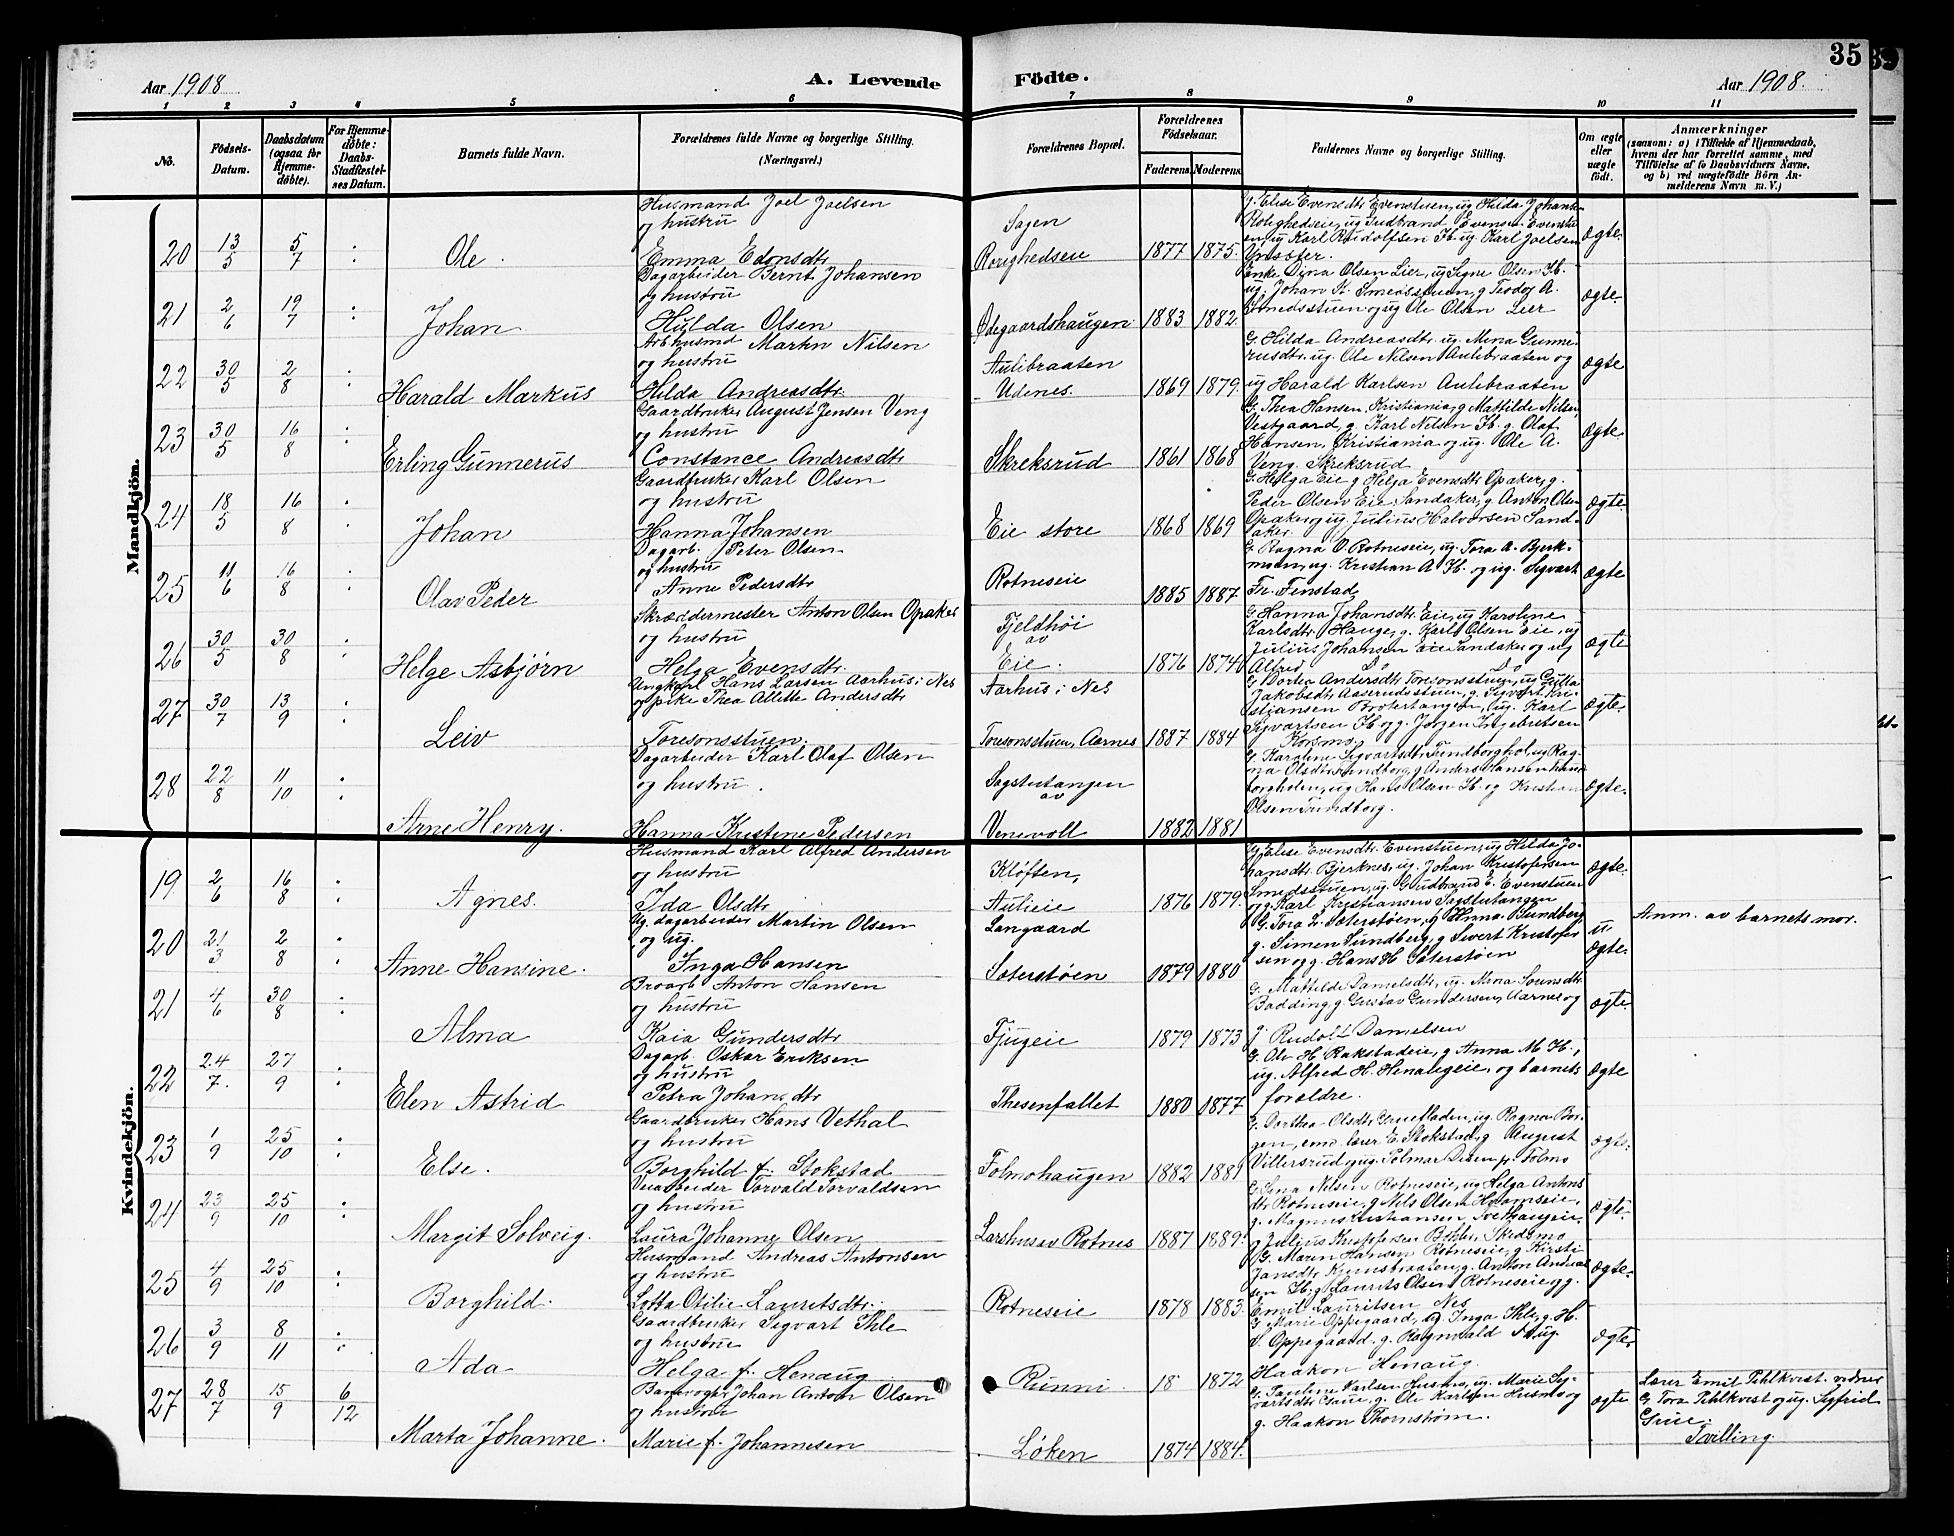 35
Aar 1908
A. Levende
Födte.
Aar 1908.
1 2 3 4 5 6 7 8 9 10 11
No.
Födsels-
Datum.
Daabsdatum
(ogsaa for
Hjemme-
döbte).
For Hjemme-
döbte:
Daabs-
Stadfæstel-
ses Datum.
Barnets fulde Navn.
Forældrenes fulde Navne og borgerlige Stilling.
(Næringsvei.)
Forældrenes Bopæl.
Forældrenes
Födselsaar.
Faderens. Moderens.
Faddernes Navne og borgerlige Stilling.
Om ægte
eller
uægte
födt.
Anmærkninger
(saasom: a) i Tilfælde af Hjemmedaab,
hvem der har forrettet samme, med
Tilföielse af to Daabsvidners Navne,
og b) ved uægtefödte Börn An-
melderens Navn m. V.)
Mandkjön.
20 13/5 5/7 Ole.
Husmand Joel Joelsen
og hustru
Emma Edonsdtr
Sagen
Rolighedseie
1877 1875.
ægte.
21 2/6 19/7 Johan
Dagarbeider Bernt Johansen
og hustru
Hulda Olsen
Ødegaardshaugen
1883 1882
Enke Dina Olsen Lier, ug Signe Olsen Ib.
Smedsstuen og ug Ole Olsen Lier
ægte
22 30/5 2/8 Harald Markus
Arb husmd Martin Nilsen
og hustru
Hilda Andreasdtr.
Aulibraaten
Udenes.
1869 1879.
G. Hilda Andreasdtr. ug. Mina Gunne-
rusdtr. ug. Ole Nilsen Aulibraaten og
ug Harald Karlsen Aulibraaten
ægte
23 30/5 16/8 Erling Gunnerus
Gaardbruker August Jensen Veng
og hustru
Constance Andreasdtr
Skreksrud
1861 1868
G. Thea Hansen, Kristiania, g Mathilde Nilsen,
Vestgaard, g. Karl Nilsen Ib. g. Olaf
Hansen, Kristiania og ug. Ole A.
Veng. Skreksrud
ægte
24 18/5 16/8 Johan
Gaardbruker Karl Olsen
og hustru
Hanna Johansen
Eie store
1868 1869
G. Helga Eie g Helga Evensdtr Opaker, g.
Peder Olsen Eie Sandaker, g. Anton Olsen
Opaker og ug. Julius Halvorsen Sand-
aker.
ægte
25 11/6 16/8 Olav Peder
Dagarb. Peter Olsen
og hustru
Anne Pedersdtr
Rotneseie
1885 1887
G. Ragna O Rotneseie, ug. Tora A. Bjerk-
moen, ug. Kristian A Ib. og ug. Sigvart
Fr. Finstad
ægte
26 30/5 30/8 Helge Asbjørn
Skræddermester Anton Olsen Opaker
og hustru
Helga Evensdtr.
Fjeldhøi
av
Eie.
1876 1874
G. Hanna Johansdtr. Eie, ug Karoline
Karlsdtr. Hauge, g. Karl Olsen Eie, ug
Julius Johansen Eie Sandaker og ug
Alfred Do Do
ægte
27 30/7 13/9 Leiv
Ungkarl Hans Larsen Aarhus i Nes
og pike Thea Alette Andersdtr
Toresonsstuen.
Aarhus i Nes
Toresonsstuen, Aarnes
1887 1884
G Dortea Andersdtr Toresonsstuen, ug Gutta
Jakobsdtr Aaserudsstuen, g. Sigvart Kri-
stiansen Brotertangen, ug. Karl
Sigvartsen Ib og g. Jørgen Ingebretsen
Korsmo.
ægte.
28 22/8 11/10 Arne Henry.
Dagarbeider Karl Olaf Olsen
og hustru.
Hanna Kristine Pedersen
Sagstutangen
av
Venevoll
1882 1881
Olsen Trindborg.
ægte.
Kvindekjön.
19 2/6 16/8 Agnes.
Husmand Karl Alfred Andersen
og hustru
Ida Olsdtr
Kløften,
Aulieie
1876 1879.
G. Elise Evensdtr. Evenstuen, ug Hilda Jo-
hansdtr. Bjerknes, ug. Johan Kristofersen
Smedsstuen, ug. Gudbrand E. Evenstuen
og g. Karl Kristiansen Sagstutangen
ægte.
20 21/3 2/8 Anne Hansine.
Ug. dagarbeider Martin Olsen
og ug.
Inga Hansen
Langaard
Sæterstøen
1879 1880
g. Simen Sundberg, g Sivert Kristofer
sen og g. Hans H Sæterstøen
u
ægte.
Anm. av barnets mor.
21 4/6 30/8 Alma
Broarb Anton Hansen
og hustru
Kaia Gundersdtr
Tjugeie
1879 1873
Badding, g Gustav Gundersen, Aarnes og
g. Rudolf Danielsen
ægte.
22 24/7. 27/9 Elen Astrid
Dagarb. Oskar Eriksen
og hustru
Petra Johansdtr
Thesenfallet
1880 1877
G. Olv H. Rakstadeie, g Anna M. Ib.,
ug. Alfred H. Henaugeie, og barnets
forældre.
ægte
23 1/9 25/10 Else.
Gaardbruker Hans Vethal
og hustru
Borghild f. Stokstad
Folmohaugen
1882 1881
ægte.
24 23/9 25/10 Margit Solveig.
Veiarbeider Torvald Torvaldsen
og hustru
Laura Johanne Olsen
Larshus av Rotnes
1887 1889.
G. Lina Nilsen Rotneseie, ug Helga Antons
dtr Rotneseie, g. Nils Olsen Holmseie,
g. Magnus Kristiansen Tvethaugeie,
g. Julius Kristofersen Bøhler, Skedsmo
ægte.
25 4/9 25/10 Borghild.
Husmand Andreas Antonsen
og hustru
Lotta Otilie Lauritsdtr.
Rotneseie
1878 1883.
G. Maren Hansen Rotneseie, g Kirsti
Jansdtr Kjernsbraaten, g. Anton Andrea
sen Ib. g Laurits Olsen Rotneseie og g.
Emil Lauritsen Nes
ægte.
26 3/9 8/11 Ada
Gaardbruker Sigvart Ihle
og hustru
Helga f. Henaug
Runni.
18 1872
G. Marie Oppegaard, ug. Inga Ihle, g. H.
S. Oppegaard, g. Ragnvald & ug.
Haakon Henaug.
ægte.
27 28/7 15/9 6/12 Marta Johanne.
Banevogter Johan Anton Olsen
og hustru
Marie f. Johannesen
Løken
1874 1884.
G. Pauline Karlsen Husmo, ug. Marie Sig-
g. Haakon Thornstrøm.
ægte
Lærer Emil Pihlkvist. vidner
G. Tora Pihlkvist og ug. Sigfrid
Grue.
Tvilling